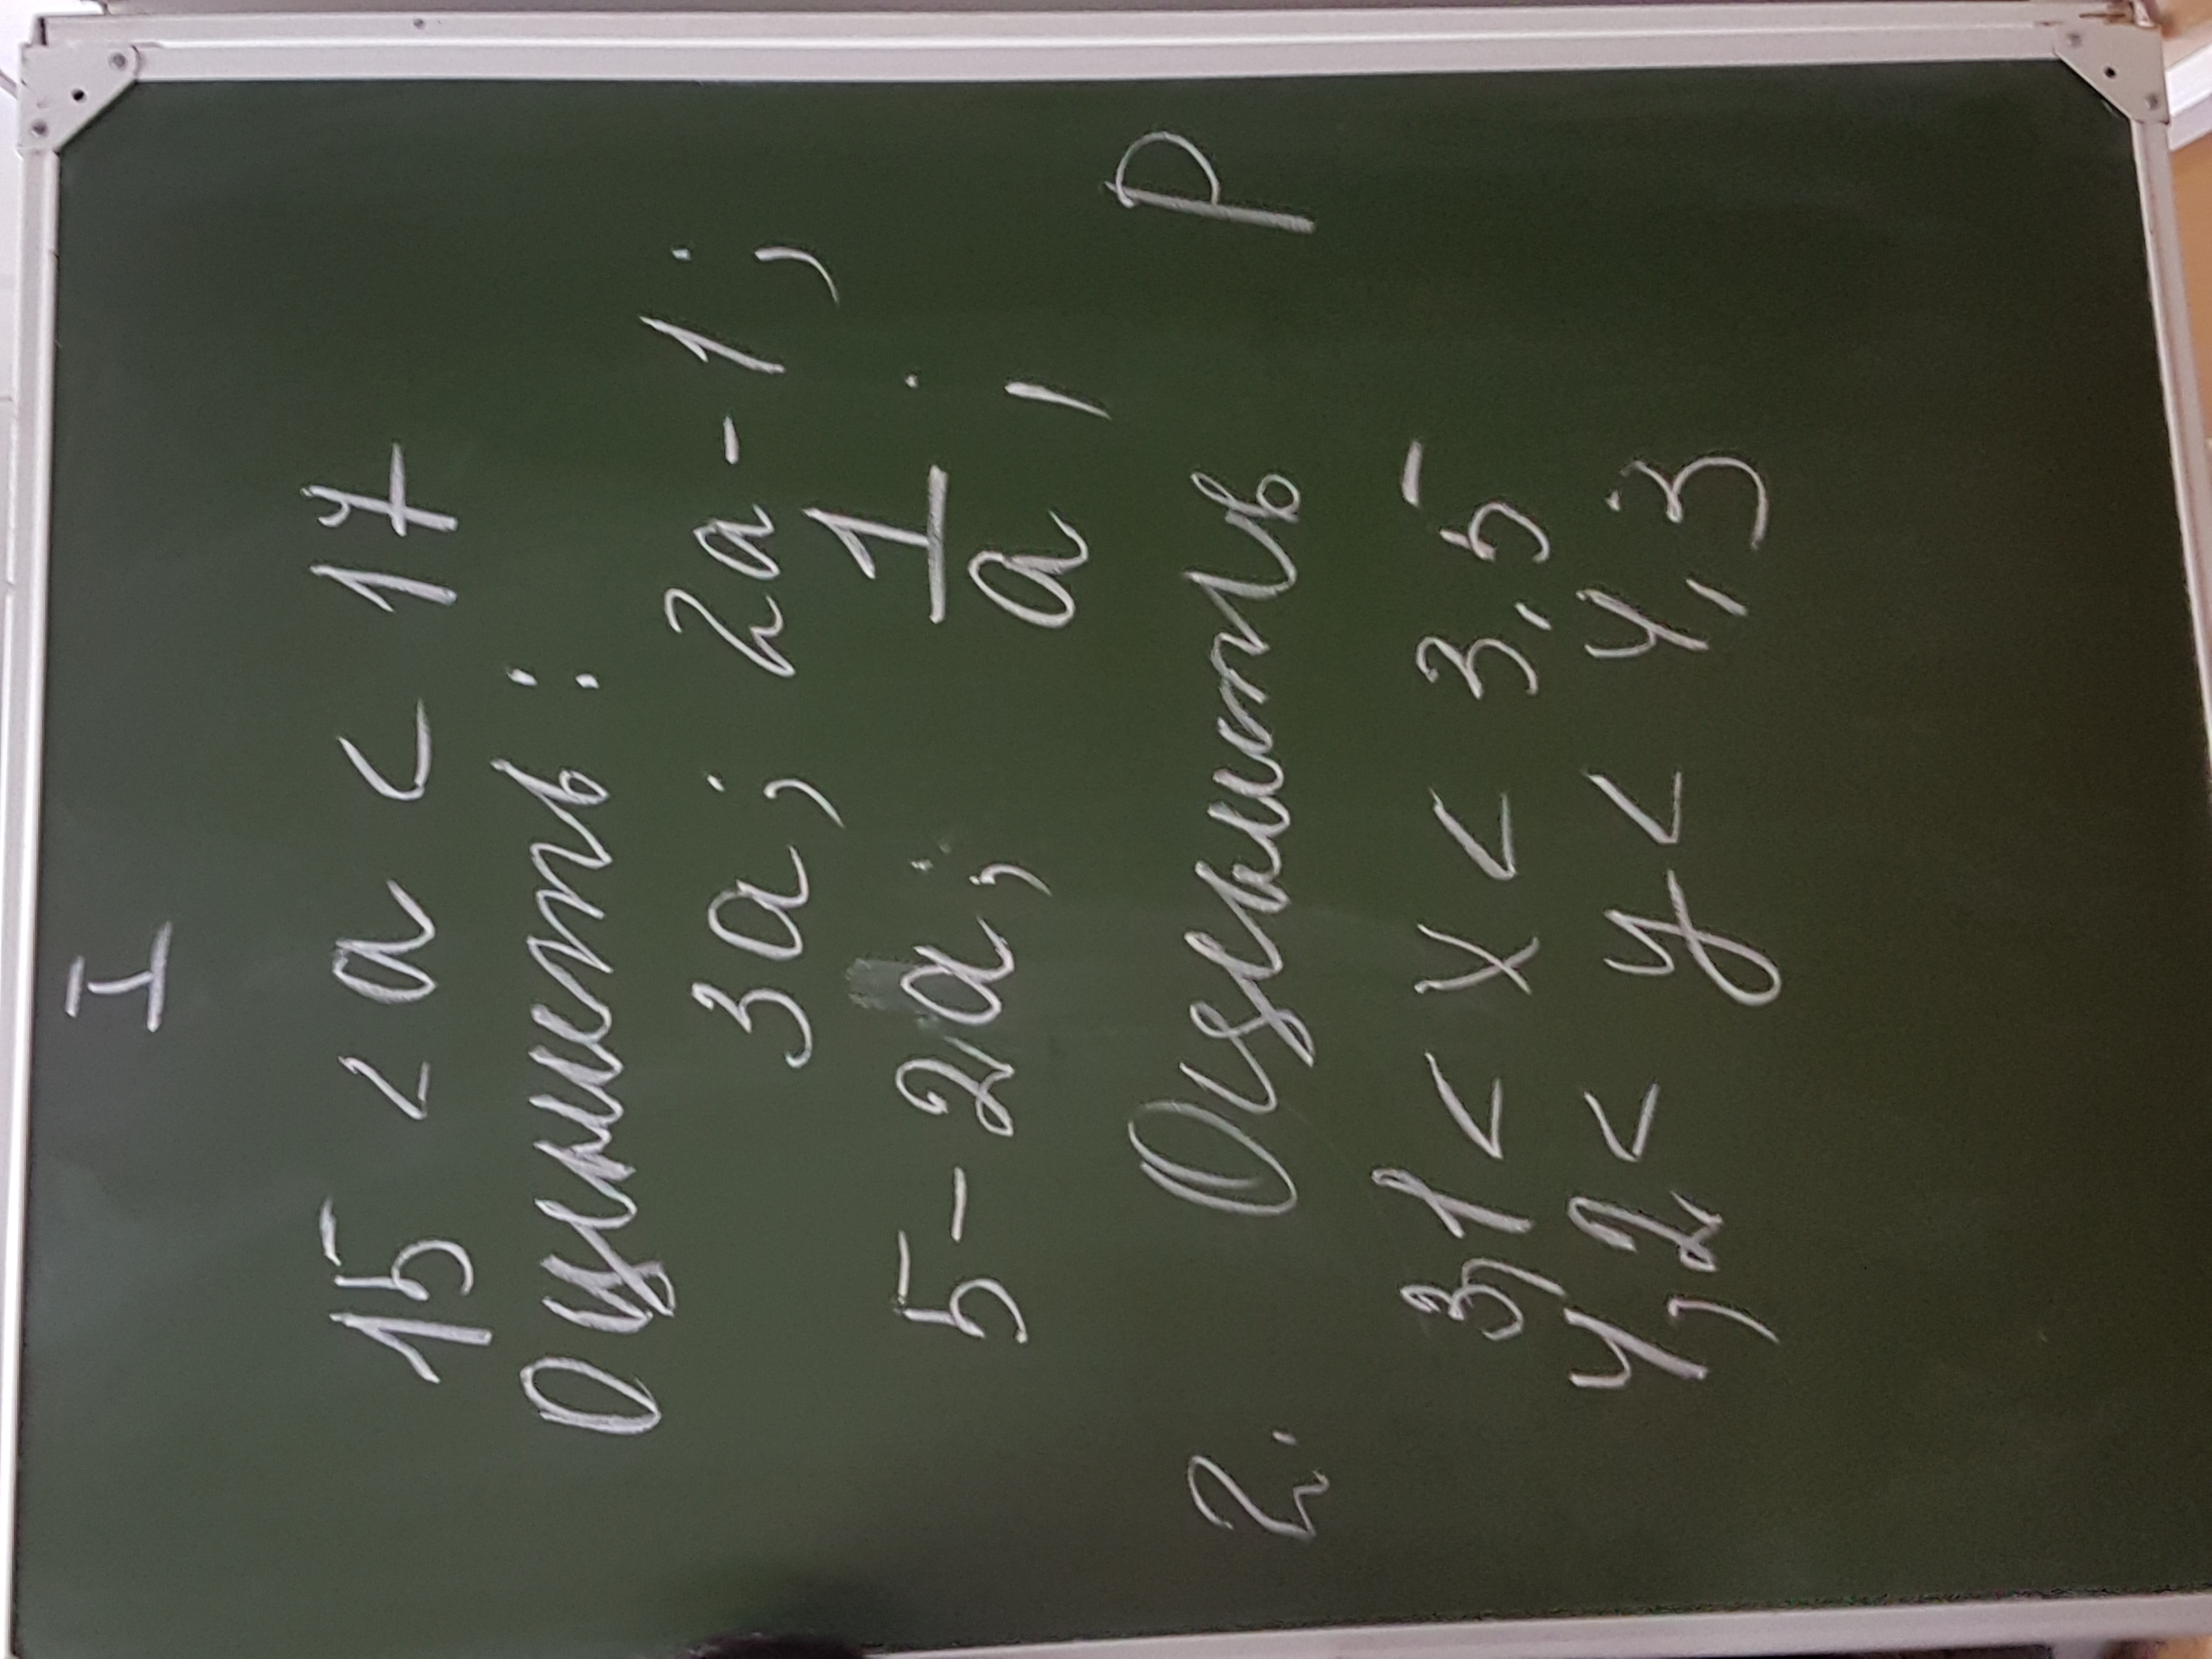 I
15 < a < 17
Оцените:
3a; 2a-1;
5-2a; 1/a;
2. Оцените P
3,1 < x < 3,5
4,2 < y < 4,3